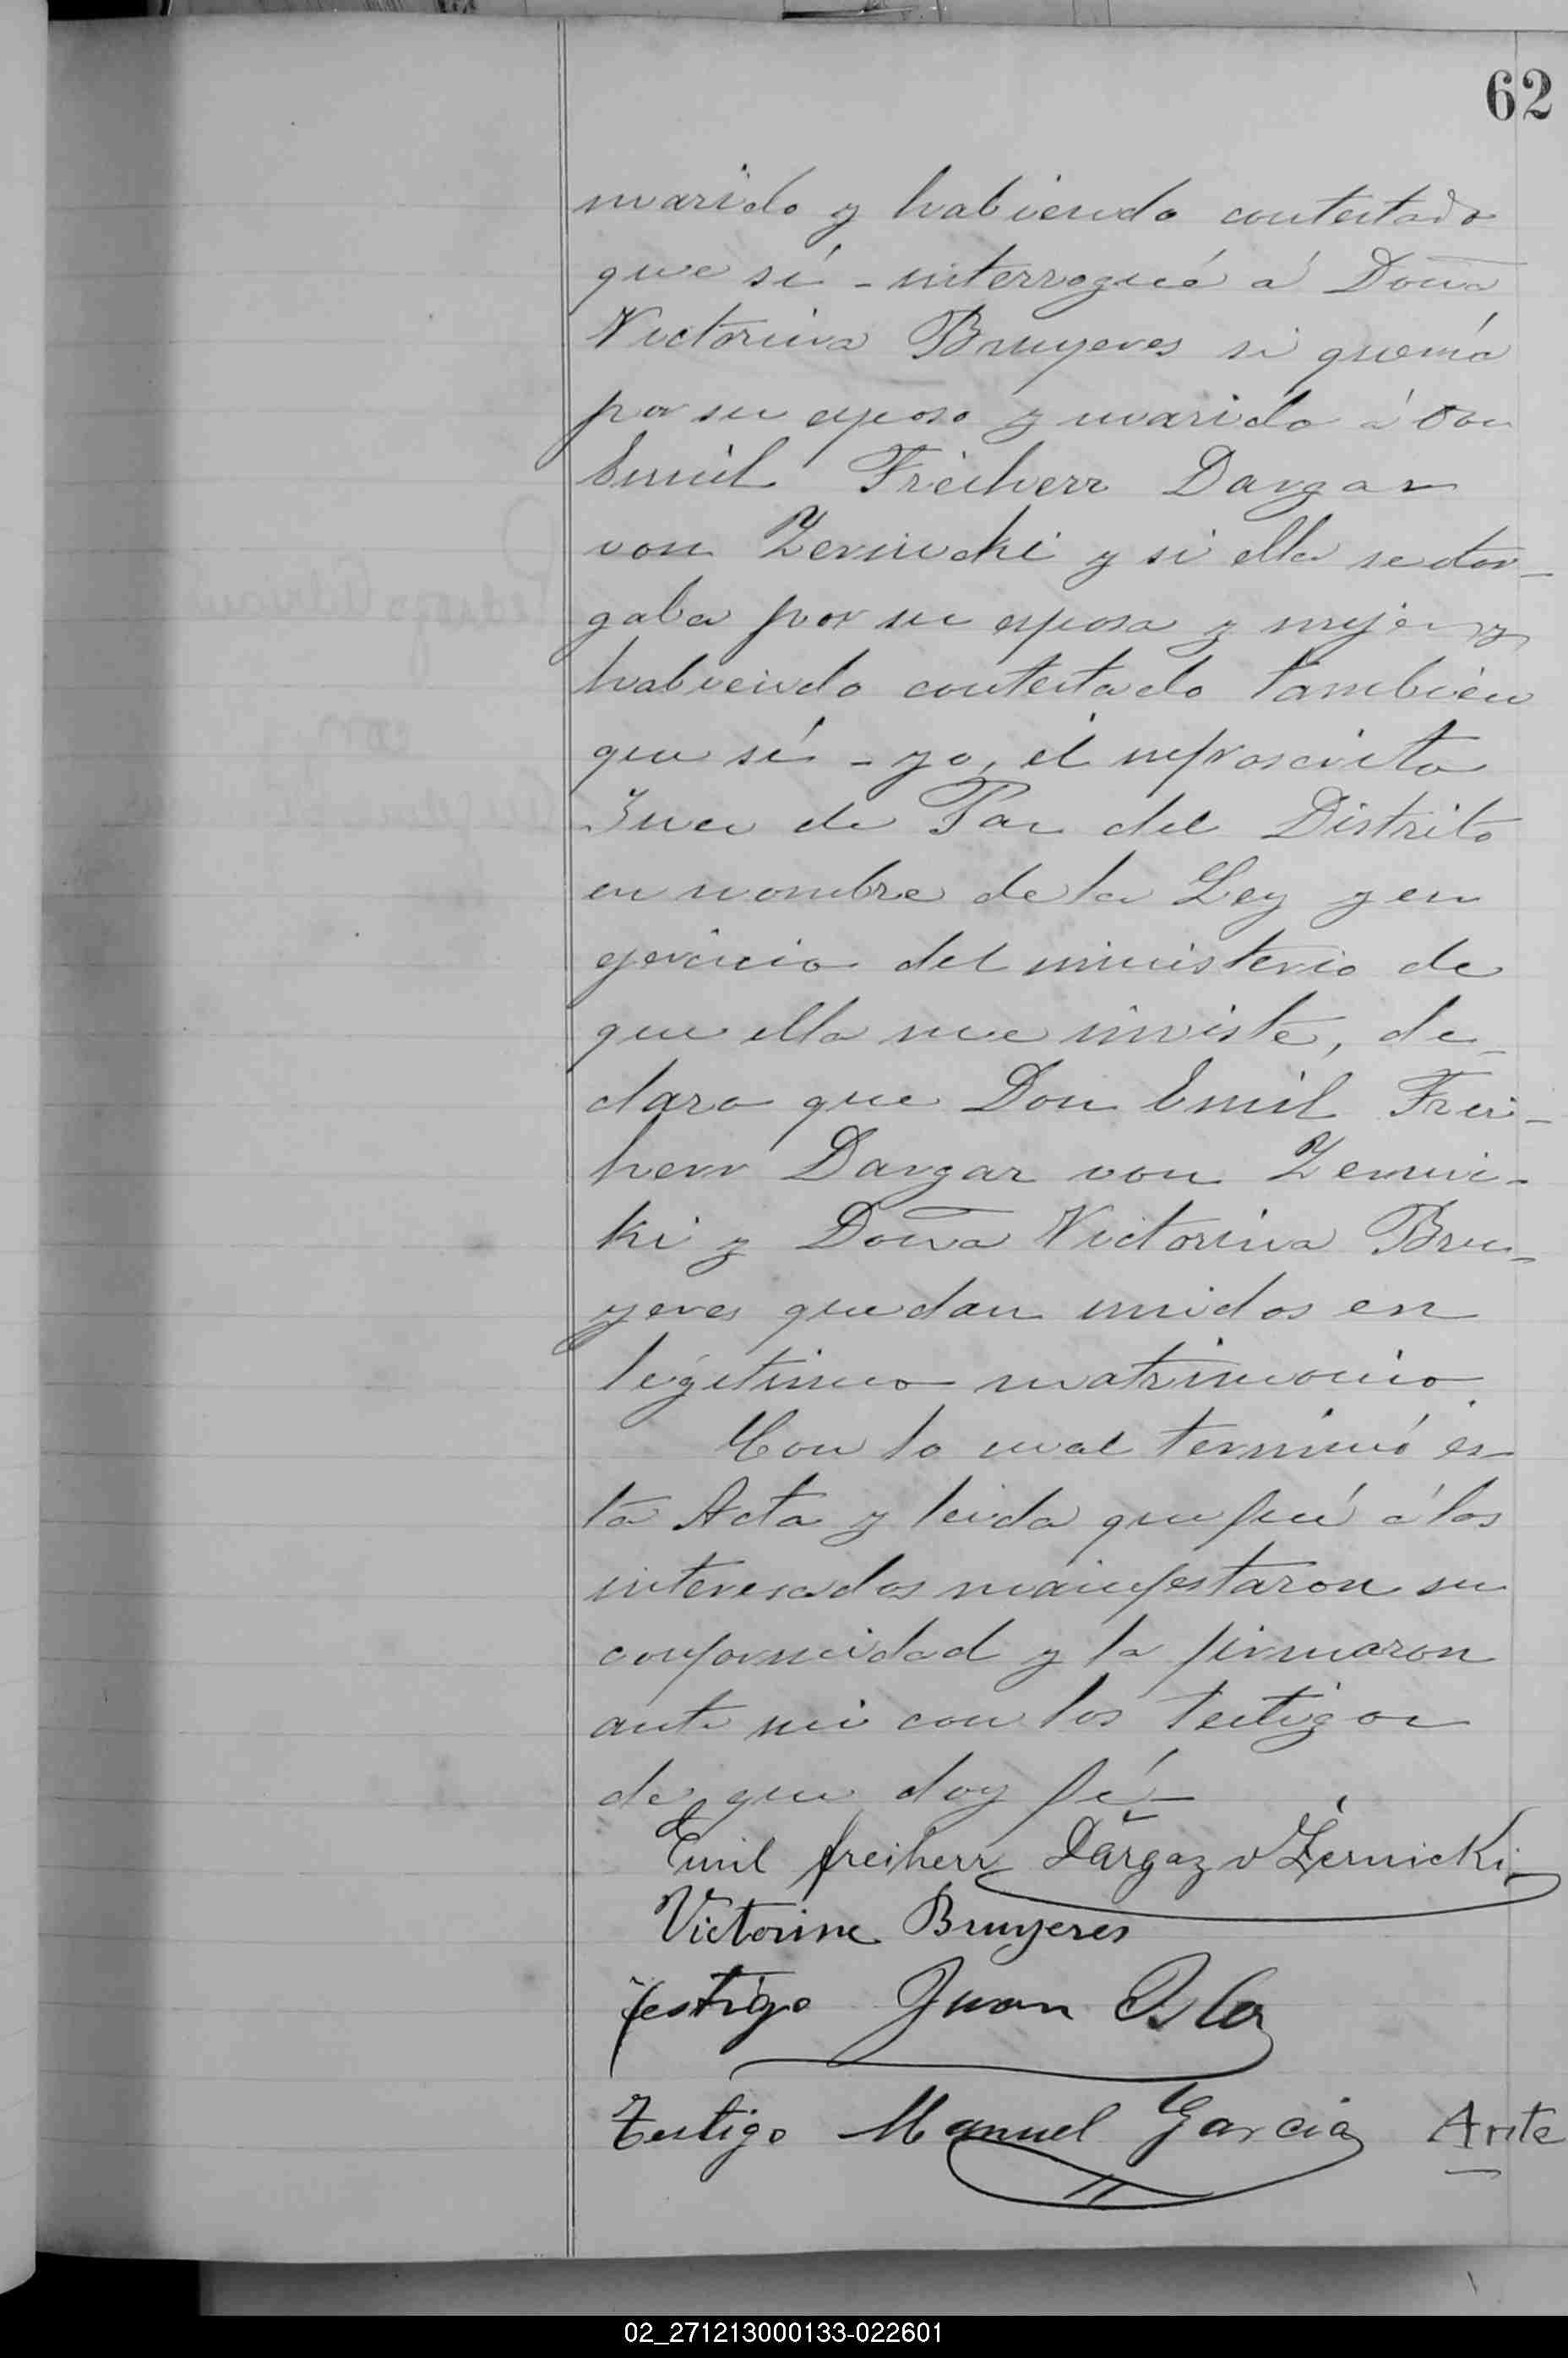 62
marido y habiendo contestado
que sí - interrogué á Doña
Victorina Bruyeres si quería
por su esposo y marido á Don
Emil Freiherr Dargaz
von Zernicki y si ella se otor-
gaba por su esposa y mujer y
habiendo contestado también
que sí - yo, el infrascrito
Juez de Paz del Distrito
en nombre de la Ley y en
ejercicio del ministerio de
que ella me inviste, de-
claro que Don Emil Frei-
herr Dargaz von Zernic-
ki y Doña Victorina Bru-
yeres quedan unidos en
legítimo matrimonio.
Con lo cual terminó és-
ta Acta y leida que fué á los
interesados manifestaron su
conformidad y la firmaron
ante mi con los testigos
de que doy fé -
Emil freiherr Dargaz v Żernicki
Victorine Bruyeres
testigo Juan Isla
Testigo Manuel Garcia Ante
02_271213000133-022601